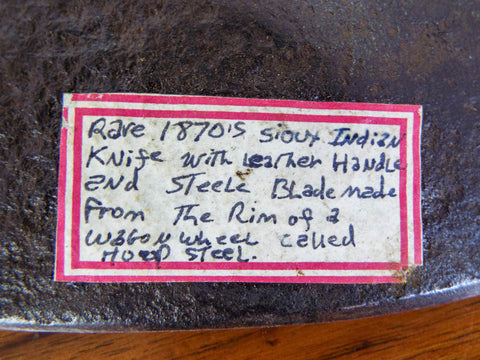 Rare 1870's Sioux Indian
Knife with Leather Handle
and Steele Blade made
From The Rim of a
Wagon wheel called
Hoop Steel.